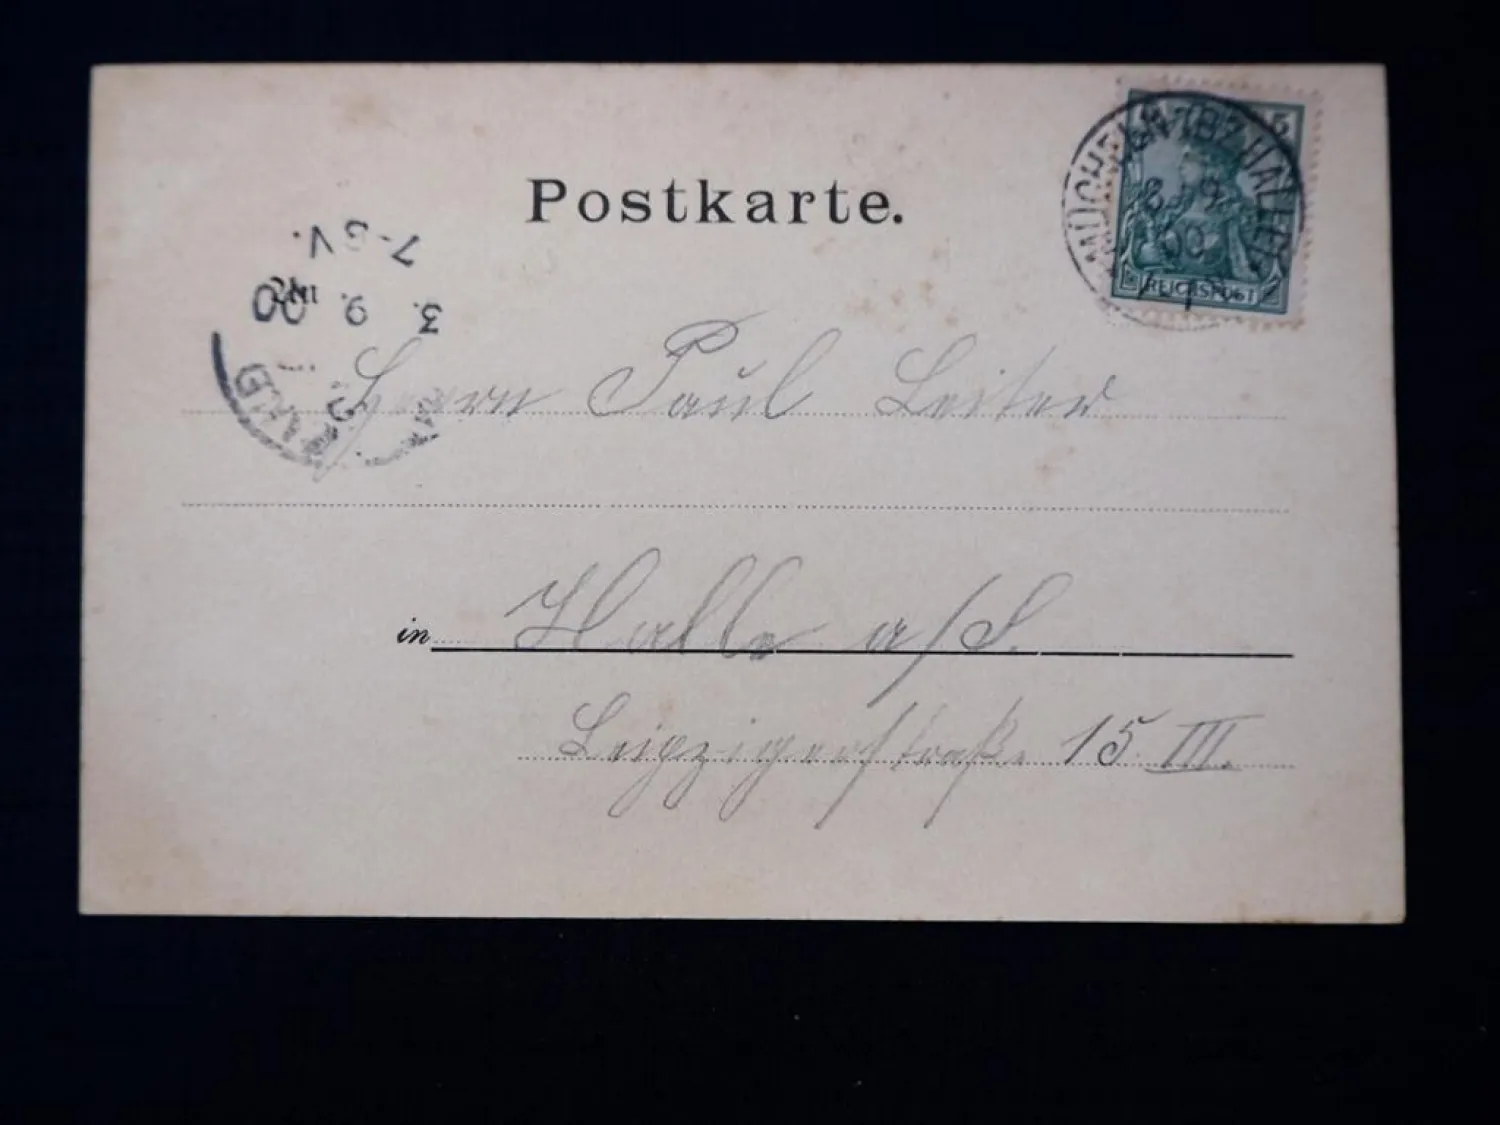 Postkarte.
5
MÜCHELN (BZ. HALLE)
9
00
REICHSPOST
7-8V.
3. 9. 00
An
Herrn Paul Leiter
in Halle a/S.
Leipzigerstraße 15 III.